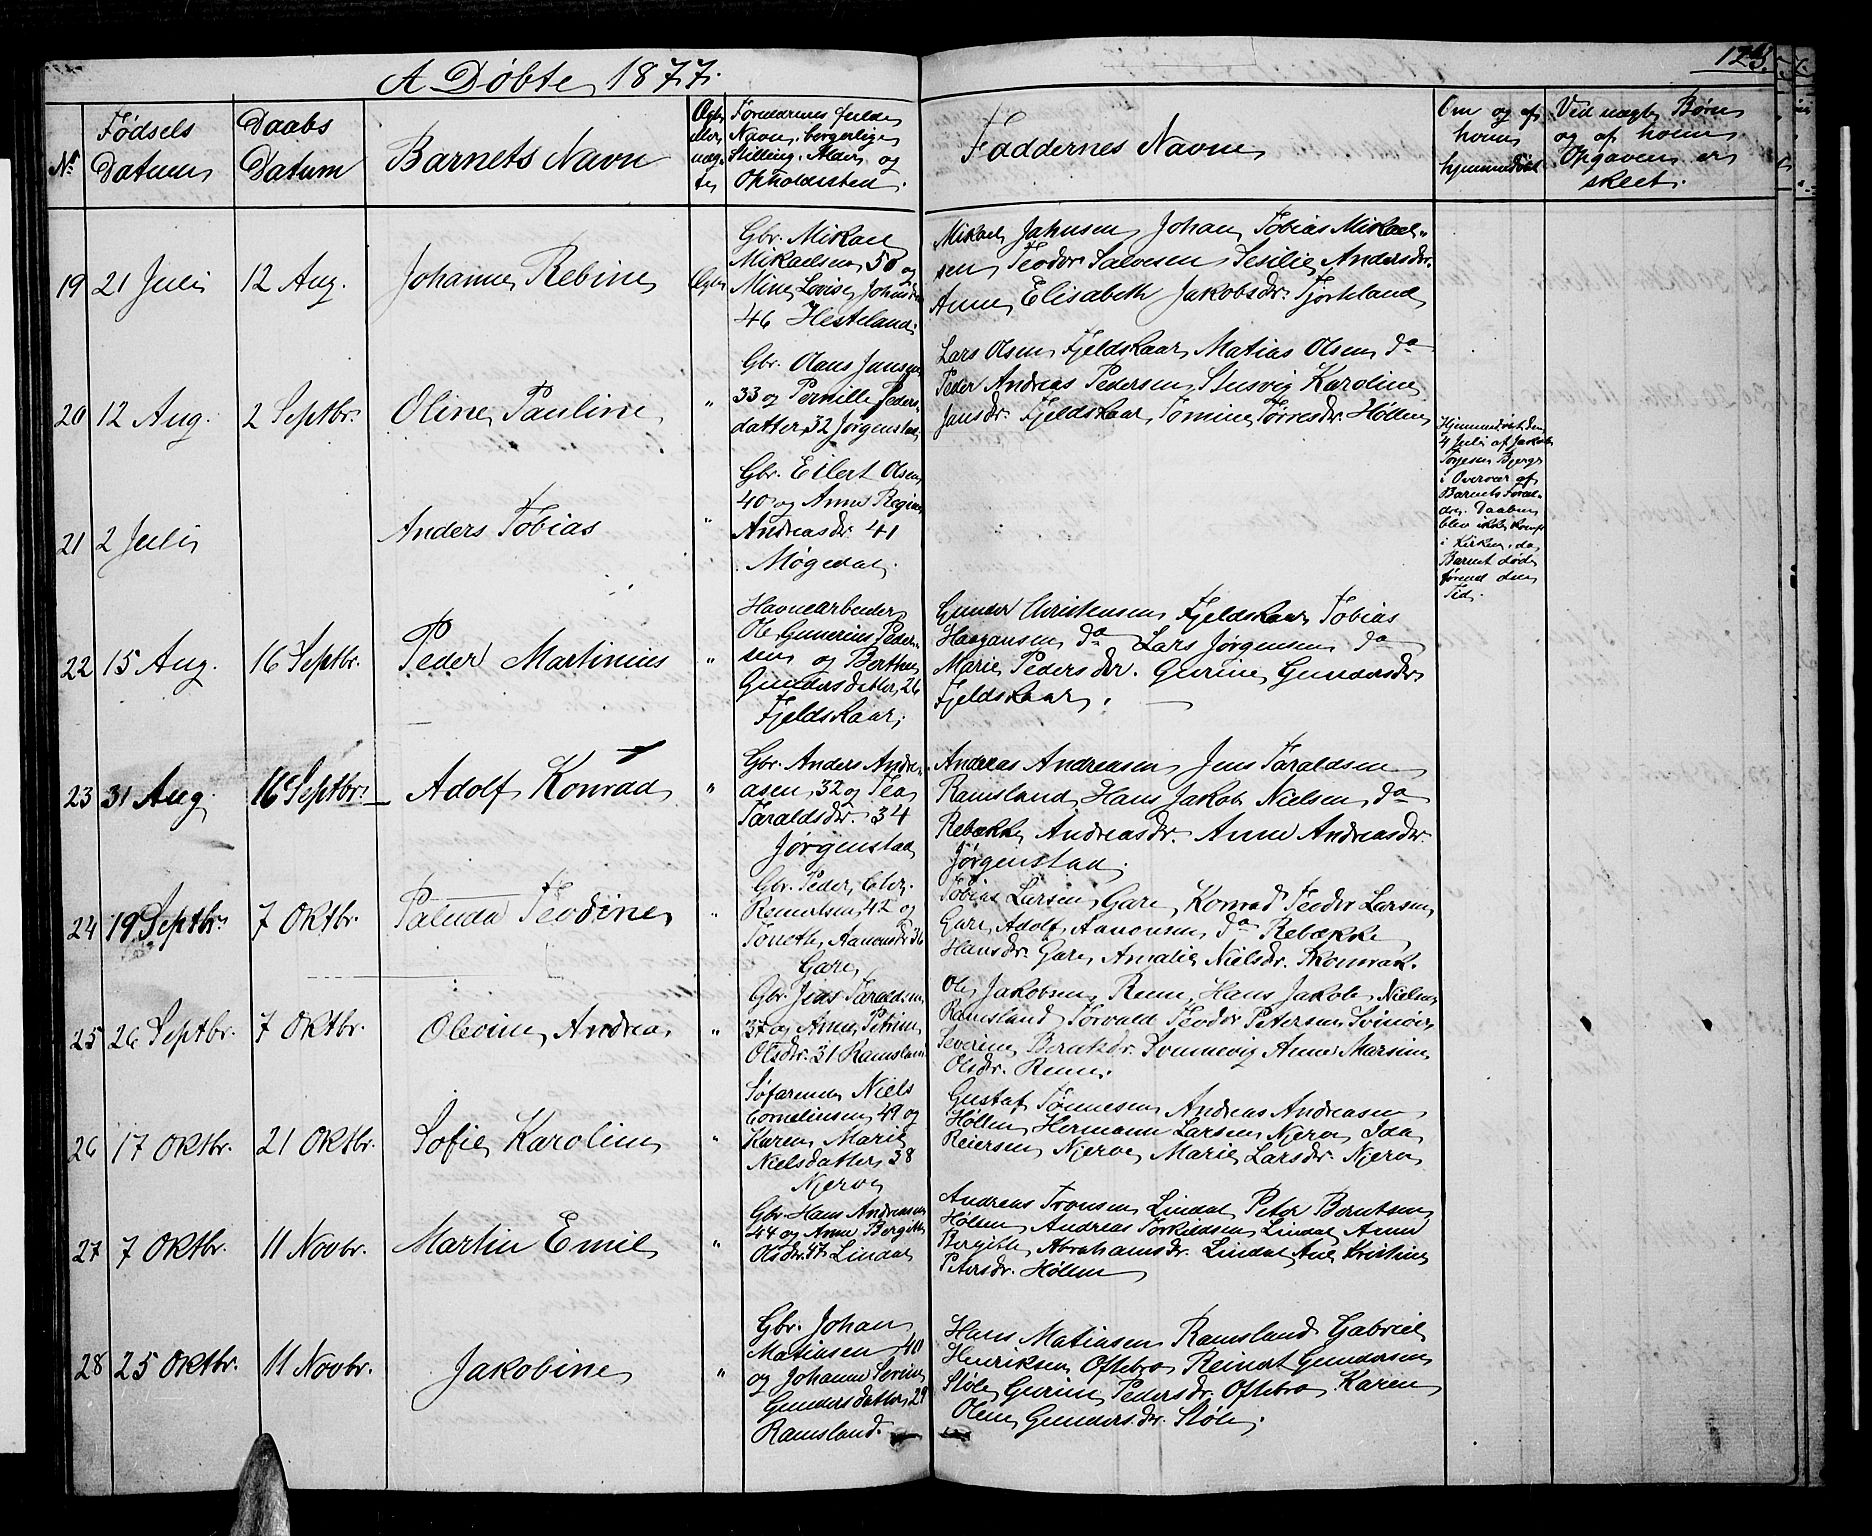 A Døbte 1877.
123.
No
Fødsels
Datum
Daabs
Datum
Barnets Navn
Ægte
eller
uæg-
te
Forældrenes fulde
Navn, borgerlige
Stilling, Alder og
Opholdssted.
Faddernes Navne
Om og af
hvem
hjemmedøbt
Ved uægte Børn
og af hvem
Opgaven er
skeet.
19 21 Juli 12 Aug. Johanne Rebine Ægte
Gbr. Mikael
Mikaelsen 50 og
Mine Lovise Johnsdr
46 Hesteland.
Mikael Jahnsen Johan Tobias Mikael-
sen Teodor Salvesen Sesilie Andersdr.
Anne Elisabeth Jakobsdr. Tjorkland
20 12 Aug. 2 Septbr. Oline Pauline "
Gbr. Olaus Jansen
33 og Pernille Peders-
datter 32 Jørgenstad
Lars Olsen Fjeldskaar Matias Olsen do
Peder Andreas Pedersen Slusvig Karoline
Jansdr. Fjeldskaar Tomine Torresdr. Høllen
21 2 Juli Anders Tobias "
Gbr. Eilert Olsen
40 og Anne Regine
Andreasdr. 41
Møgedal.
Hjemmedøbt den
4 Juli af Jakob
Torjesen Bjerge
i Overvær af
Barnets Foræl-
dre. Daaben
blev ikke
i Kirken, da
Barnet døde
førend den
Tid.
22 15 Aug. 16 Septbr. Peder Martinius "
Havnearbeider
Ole Gunerius Peder-
sen og Berthe
Gundersdatter 26
Fjeldskaar.
Gunder Christensen Fjeldskaar Tobias
Haagansen do Lars Jørgensen do
Marie Pedersdr. Gurine Gundersdr.
Fjeldskaar.
23 31 Aug. 16 Septbr. Adolf Konrad "
Gbr. Anders Andre-
asen 32 og Tea
Taraldsdr. 34
Jørgenstad
Andreas Andreasen Jens Taraldsen
Ramsland Hans Jakob Nielsen do
Rebække Andreasdr. Anne Andreasdr.
Jørgenstad.
24 19 Septbr. 7 Oktbr. Palmda Teodine "
Gbr. Peder Chr.
Reinertsen 42 og
Tonethe Aanonsdr 36
Gare
Tobias Larsen Gare Konrad Teodor Larsen
Gare Adolf Aanonsen do Rebække
Hansdr. Gare Amalie Nielsdr. Skomrak.
25 26 Septbr. 7 Oktbr. Olevine Andrea "
Gbr. Jens Taraldsen
37 og Anne Petrine
Olsdr. 31 Ramsland
Ole Jakobsen Renn Hans Jakob Nielsen
Ramsland Torvald Teodor Petersen Svinøer
Severine Berntsdr. Sonnevig Anne Marsine
Olsdr. Renn.
26 17 Oktbr. 21 Oktbr. Sofie Karoline "
Søfarende Niels
Corneliusen 49 og
Karen Marie
Nielsdatter 38
Njerve
Gustaf Tønnesen Andreas Andreasen
Høllen Hermann Larsen Njerve Ida
Reiersen Njerve Marie Larsdr. Njerve
27 7 Oktbr. 11 Novbr. Martin Emil "
Gbr. Hans Andreasen
44 og Anne Bergitte
Olsdr. Lindal
Andreas Tronsen Lindal Peter Berntsen
Høllen Andreas Torkildsen Lindal Anne
Bergitte Abrahamsdr. Lindal Ane Kristine
Petersdr. Høllen
28 25 Oktbr. 11 Novbr. Jakobine "
Gbr. Johan
Matiasen 40
og Johanne Sorine
Gundersdatter 29
Ramsland.
Hans Matiasen Ramsland Gabriel
Henriksen Oftebro Reinert Gundersen
Støle Gurine Pedersdr. Oftebro Karen
Oline Gundersdr. Støle.